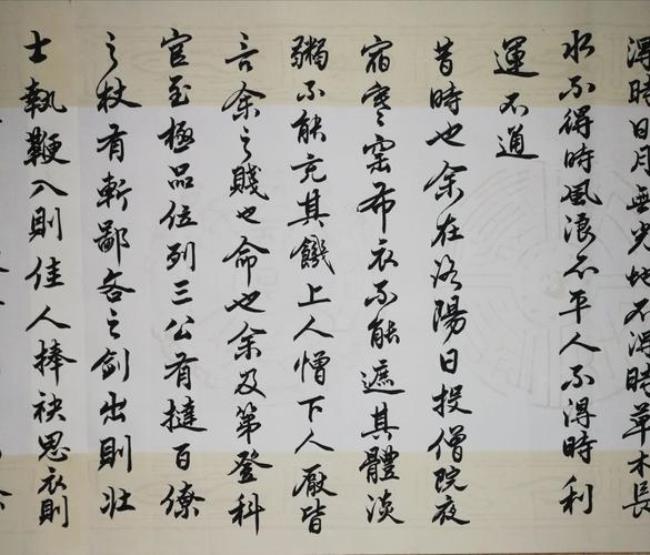 得時日月無光地不得時草木長
水不得時風浪不平人不得時利
運不通
昔時也余在洛陽日投僧院夜
宿寒窯布衣不能遮其體淡
粥不能充其饑上人憎下人厭皆
言余之賤也命也余及第登科
官至極品位列三公有撻百僚
之杖有斬鄙吝之劍出則壯
士執鞭入則佳人捧袂思衣則